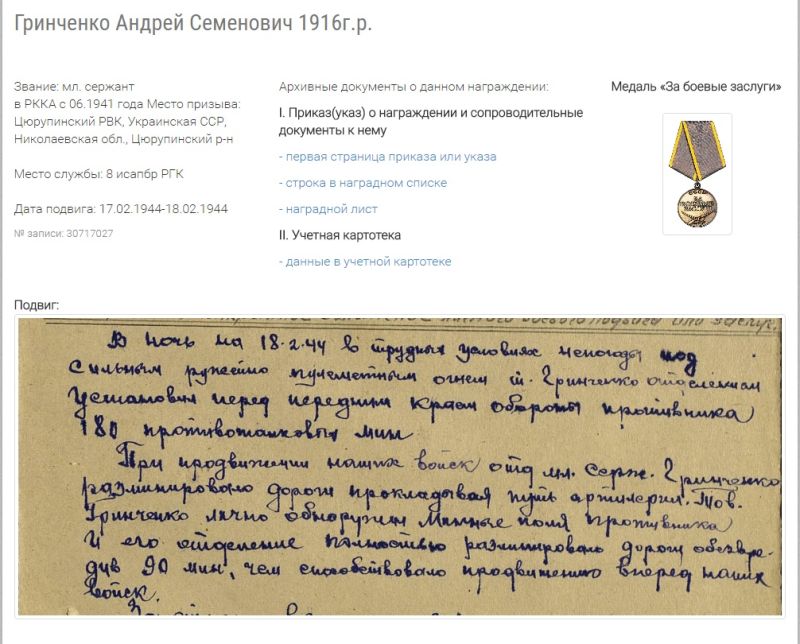 Гринченко Андрей Семенович 1916г.р.
Звание: мл. сержант
в РККА с 06.1941 года Место призыва:
Цюрупинский РВК, Украинская ССР,
Николаевская обл., Цюрупинский р-н
Место службы: 8 исапбр РГК
Дата подвига: 17.02.1944-18.02.1944
№ записи: 30717027
Архивные документы о данном награждении:
I. Приказ(указ) о награждении и сопроводительные
документы к нему
- первая страница приказа или указа
- строка в наградном списке
- наградной лист
II. Учетная картотека
- данные в учетной картотеке
Медаль «За боевые заслуги»
Подвиг:
В ночь на 18.2.44 в трудных условиях непогоды под
сильным ружейно пулеметным огнем т. Гринченко отделением
установил перед передним краем обороны противника
180 противотанковых мин
При продвижении наших войск отд мл. серж. Гринченко
разминировало дороги прокладывая путь артилерии. Тов.
Гринченко лично обнаружил минные поля противника
И его отделение полностью разминировало дороги обезвре-
див 90 мин, чем способствовало продвижению вперед наших
войск.